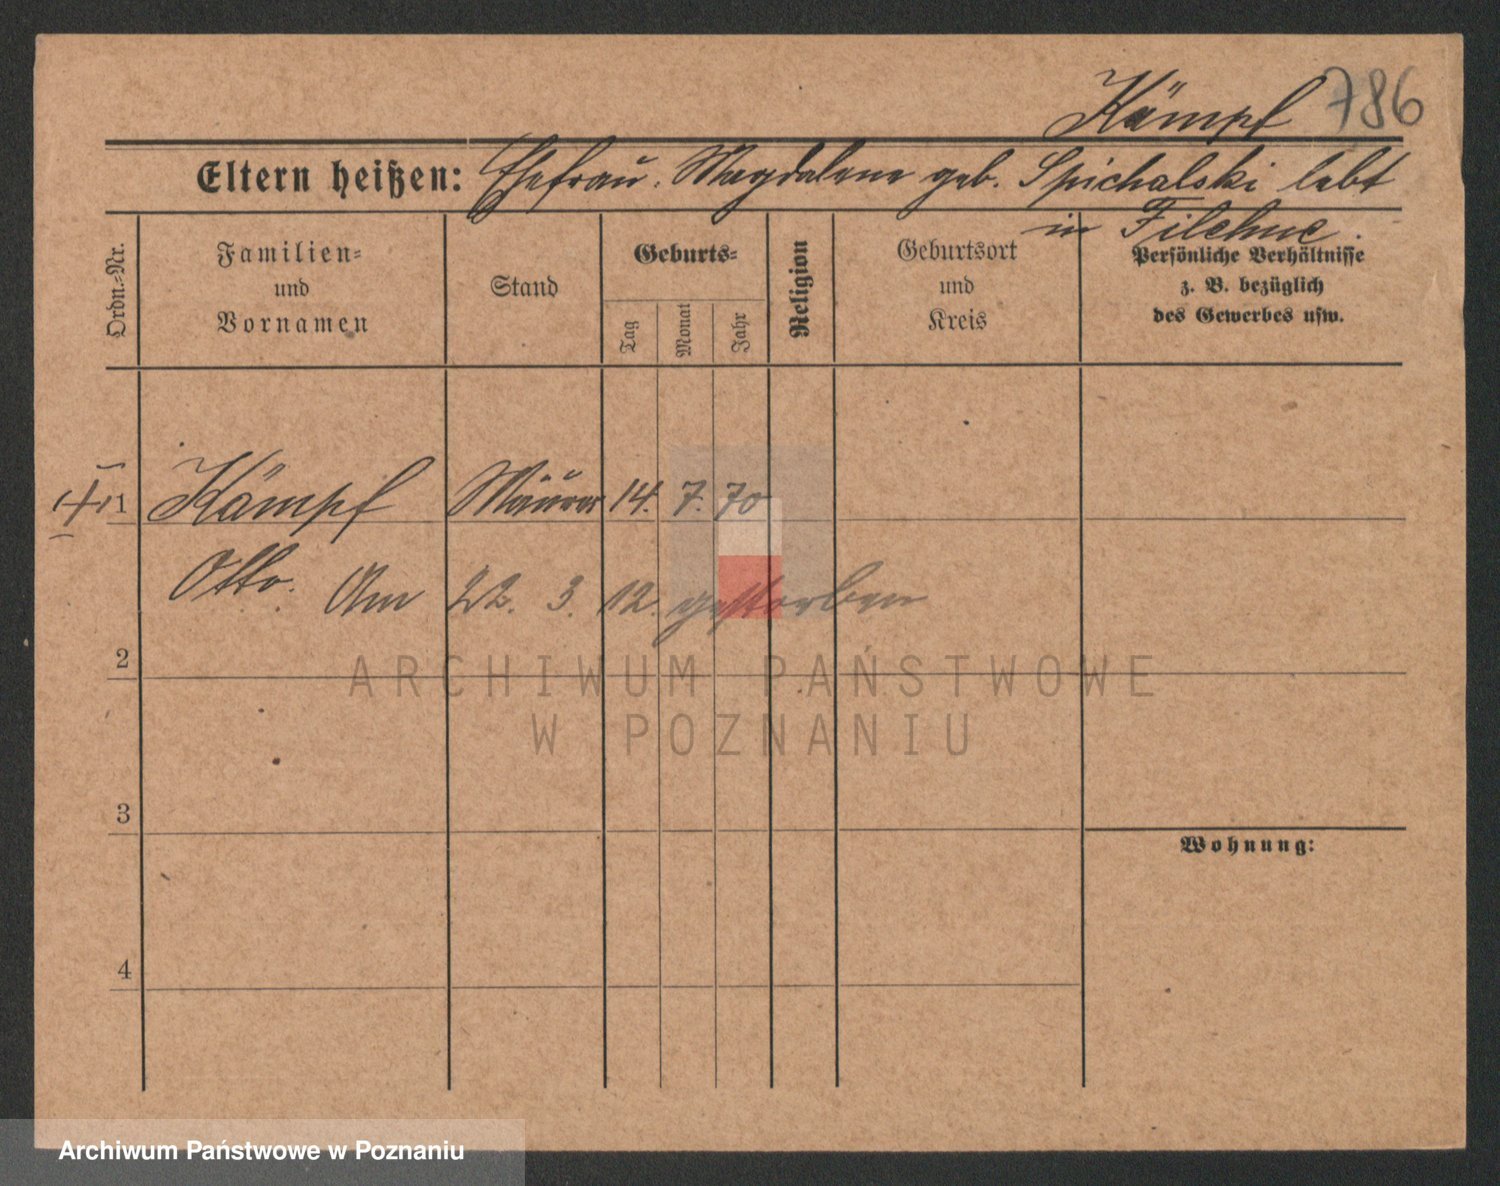 Kämpf 786
Eltern heißen: Ehefrau. Magdalene geb. Spichalski lebt
in Filehne.
Ordn.-Nr.
Familien-
und
Vornamen
Stand
Geburts-
Tag
Monat
Jahr
Religion
Geburtsort
und
Kreis
Persönliche Verhältnisse
z. B. bezüglich
des Gewerbes usw.
1 Kämpf Maurer 14. 7. 70
Otto. Am 22. 3. 12. gestorben
2
ARCHIWUM PAŃSTWOWE
W POZNANIU
3
Wohnung:
4
Archiwum Państwowe w Poznaniu